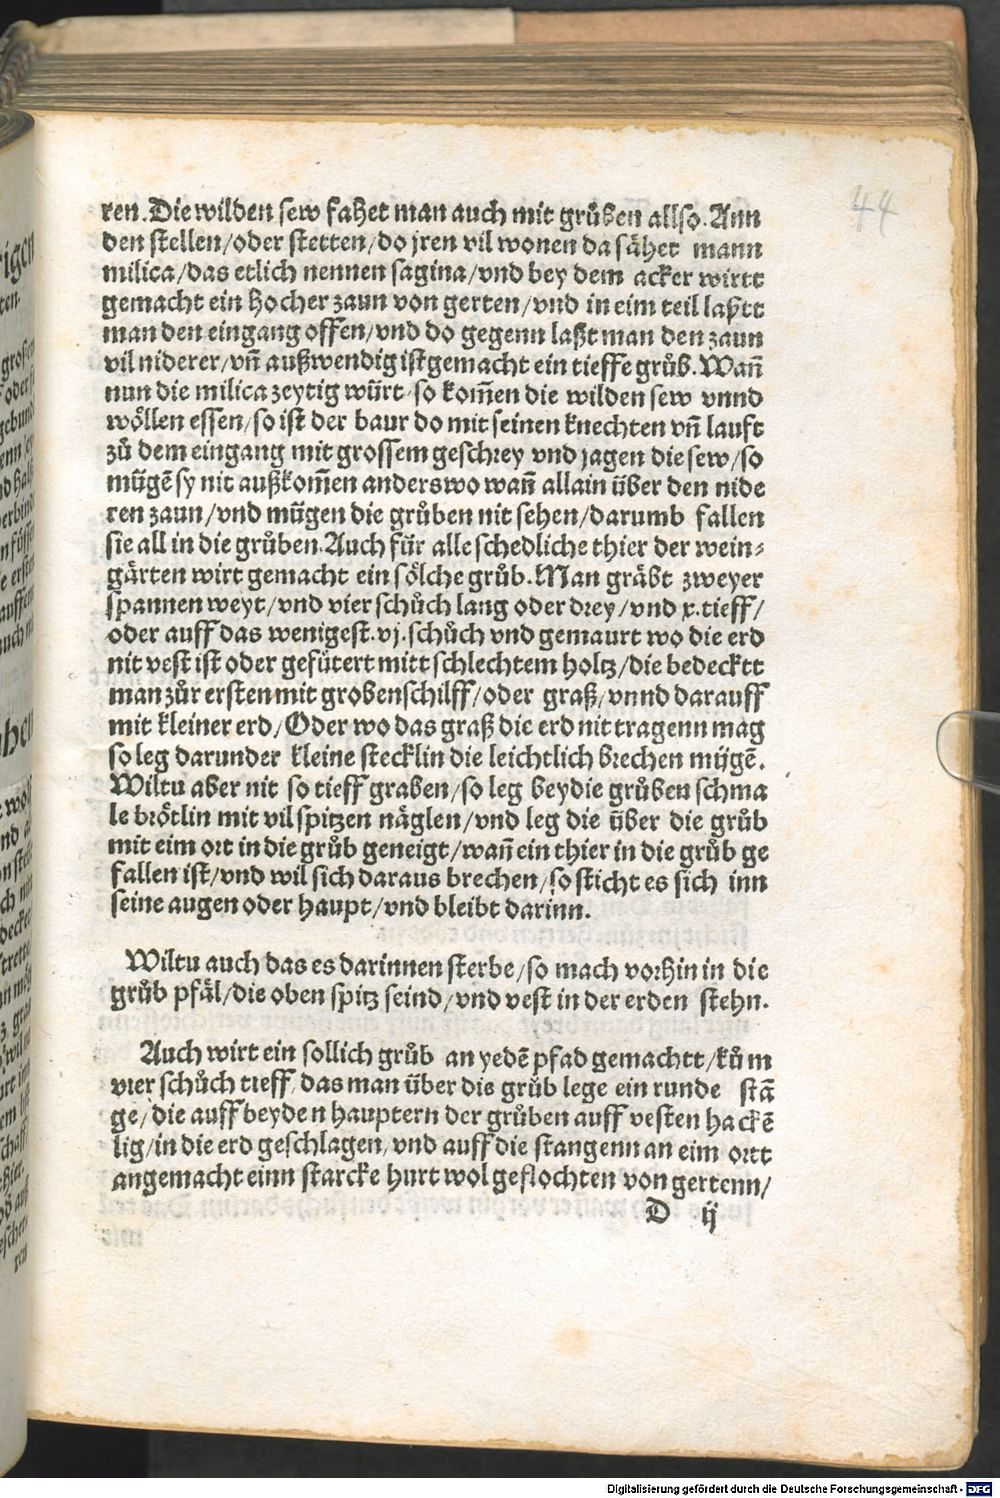 44
ren. Die wilden sew fahet man auch mit grůben allso. Ann
den stellen/oder stetten/do jren vil wonen da sähet mann
milica/das etlich nennen sagina/vnd bey dem acker wirtt
gemacht ein hocher zaun von gerten/vnd in eim teil laßtt
man den eingang offen/vnd do gegenn laßt man den zaun
vil niderer/vñ außwendig ist gemacht ein tieffe grůb. Wañ
nun die milica zeytig würt/so kom̃en die wilden sew vnnd
wöllen essen/so ist der baur do mit seinen knechten vñ lauft
zů dem eingang mit grossem geschrey vnd jagen die sew/so
mügẽ sy nit außkom̃en anderswo wañ allain über den nide
ren zaun/vnd mügen die grůben nit sehen/darumb fallen
sie all in die grůben. Auch für alle schedliche thier der wein⸗
gärten wirt gemacht ein sölche grůb. Man gräbt zweyer
spannen weyt/vnd vier schůch lang oder drey/vnd x. tieff/
oder auff das wenigest. vj. schůch vnd gemaurt wo die erd
nit vest ist oder gefütert mitt schlechtem holtz/die bedecktt
man zůr ersten mit groben schilff/oder graß/vnnd darauff
mit kleiner erd/Oder wo das graß die erd nit tragenn mag
so leg darunder kleine stecklin die leichtlich brechen mügẽ.
Wiltu aber nit so tieff graben/so leg bey die grůben schma
le brötlin mit vil spitzen näglen/vnd leg die über die grůb
mit eim ort in die grůb geneigt/wañ ein thier in die grůb ge
fallen ist/vnd wil sich daraus brechen/so sticht es sich inn
seine augen oder haupt/vnd bleibt darinn.
Wiltu auch das es darinnen sterbe/so mach vorhin in die
grůb pfäl/die oben spitz seind/vnd vest in der erden stehn.
Auch wirt ein sollich grůb an yedẽ pfad gemachtt/kům
vier schůch tieff/das man über die grůb lege ein runde stã
ge/die auff beyden hauptern der grůben auff vesten hackẽ
lig/in die erd geschlagen/vnd auff die stangenn an eim ortt
angemacht einn starcke hurt wol geflochten von gertenn/
D ij
Digitalisierung gefördert durch die Deutsche Forschungsgemeinschaft - DFG